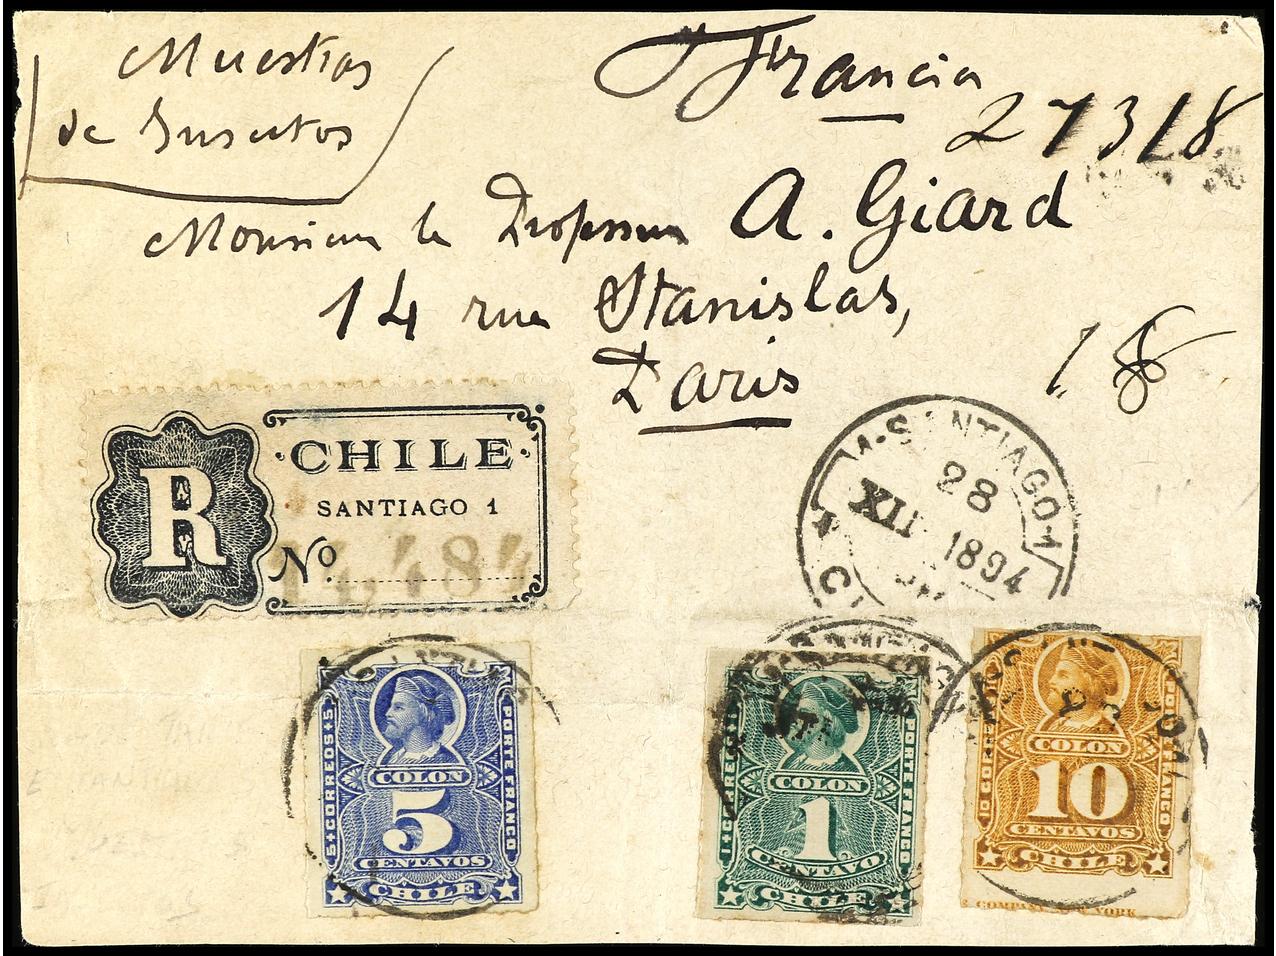 Muestras
de Insectos
Francia
27318
Monsieur le Professeur A. Giard
14 rue Stanislas,
Paris
18
R
·CHILE·
SANTIAGO 1
No. 14,484
SANTIAGO·1
28
XII 1894
5 CORREOS 5
PORTE FRANCO
COLON
5
CENTAVOS
CHILE
CORREOS
PORTE FRANCO
COLON
1
CENTAVO
CHILE
10 CORREOS
PORTE FRANCO
COLON
10
CENTAVOS
CHILE
COMPANY NEW YORK